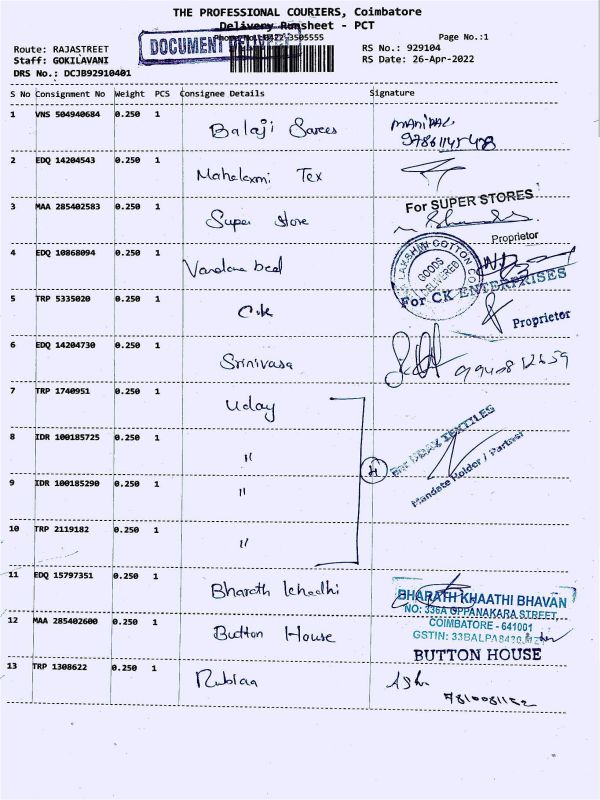 THE PROFESSIONAL COURIERS, Coimbatore
Delivery Runsheet - PCT
DOCUMENT
Page No.:1
Route: RAJASTREET
RS No.: 929104
Staff: GOKILAVANI
RS Date: 26-Apr-2022
DRS No.: DCJB92910401
S No Consignment No Weight PCS Consignee Details Signature
1 VNS 504940684 0.250 1 Balaji Sarees
2 EDQ 14204543 0.250 1 Mahalaxmi Tex
3 MAA 285402583 0.250 1 Super Store
For SUPER STORES
Proprietor
4 EDQ 10868094 0.250 1
LAKSHMI COTTON CO
GOODS DELIVERED
For CK ENTERPRISES
5 TRP 5335020 0.250 1 C.k
Proprietor
6 EDQ 14204730 0.250 1 Srinivasa
7 TRP 1740951 0.250 1 Uday
8 IDR 100185725 0.250 1 "
For UDAY TEXTILES
4
Mandate Holder / Partner
9 IDR 100185290 0.250 1 "
10 TRP 2119182 0.250 1 "
11 EDQ 15797351 0.250 1 Bharath
BHARATH KHAATHI BHAVAN
NO: 336A OPPANAKARA STREET,
COIMBATORE - 641001
12 MAA 285402600 0.250 1 Button House
GSTIN:
BUTTON HOUSE
13 TRP 1308622 0.250 1
7810081152